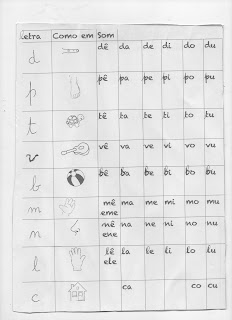 Letra Como em Som
d dê da de di do du
p pê pa pe pi po pu
t tê ta te ti to tu
v vê va ve vi vo vu
b bê ba be bi bo bu
m mê ma me mi mo mu
eme
n nê na ne ni no nu
ene
l lê la le li lo lu
ele
c ca co cu